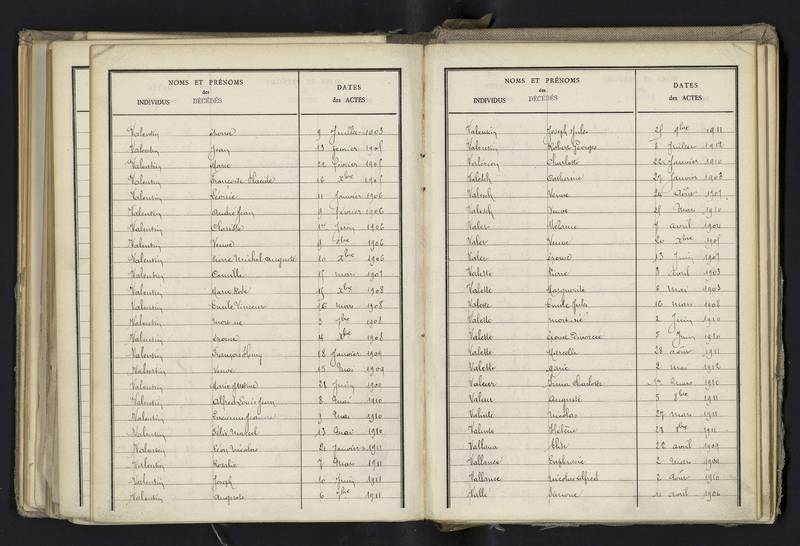 NOMS ET PRÉNOMS
des
INDIVIDUS DÉCÉDÉS
DATES
des ACTES
Valentin 9 Juillet 1903
Valentin Jean 13 février 1905
Valentin Marie 22 février 1905
Valentin Françoise Placide 16 Xbre 1905
Valentin Léonie 11 Janvier 1906
Valentin André Jean 9 février 1906
Valentin Juin 1906
Valentin Veuve 9 1906
Valentin Pierre Michel Auguste 10 Xbre 1906
Valentin Camille 15 mars 1907
Valentin Marie Rose 15 Xbre 1908
Valentin Emile Vincent 26 mars 1908
Valentin Mort-né 3 1908
Valentin Xbre 1908
Valentin François 18 Janvier 1909
Valentin Veuve 15 Mai 1909
Valentin Marie 28 Juin 1909
Valentin Alfred Louis Jean 8 Mai 1910
Valentin Lucienne Jeanne 9 Mai 1910
Valentin Félix Marcel 13 Mai 1910
Valentin Léon Nicolas 21 Janvier 1911
Valentin Rosalie 7 Mars 1911
Valentin Joseph 10 Juin 1911
Valentin Auguste 6 1911
NOMS ET PRÉNOMS
des
INDIVIDUS DÉCÉDÉS
DATES
des ACTES
Valentin Joseph Jules 25 9bre 1911
Valentin Robert Georges 8 Juillet 1912
Charlotte 22 Janvier 1910
Valesch Catherine 27 Janvier 1903
Valesch Veuve Août 1907
Valesch Veuve 25 Mars 1910
Valer Mélanie 7 avril 1904
Valer Veuve 20 Xbre 1905
Valer 13 Juin 1907
Valette Pierre 8 avril 1903
Valette Marguerite 6 mai 1903
Valette Emile Jules 16 mars 1908
Valette mort-né 2 Juin 1910
Valette Divorcée 5 Juin 1910
Valette Marcelle 28 août 1911
Valette Marie 2 mai 1912
Valeur Charlotte mars 1910
Valeur Auguste 5 1911
Valinte Nicolas 27 mars 1911
Valinte Hélène 28 1911
Vallana Elise 22 avril 1909
Vallance Euphrasie 2 Mars 1909
Vallance Nicolas Alfred 2 août 1910
Valle Simone 11 avril 1906